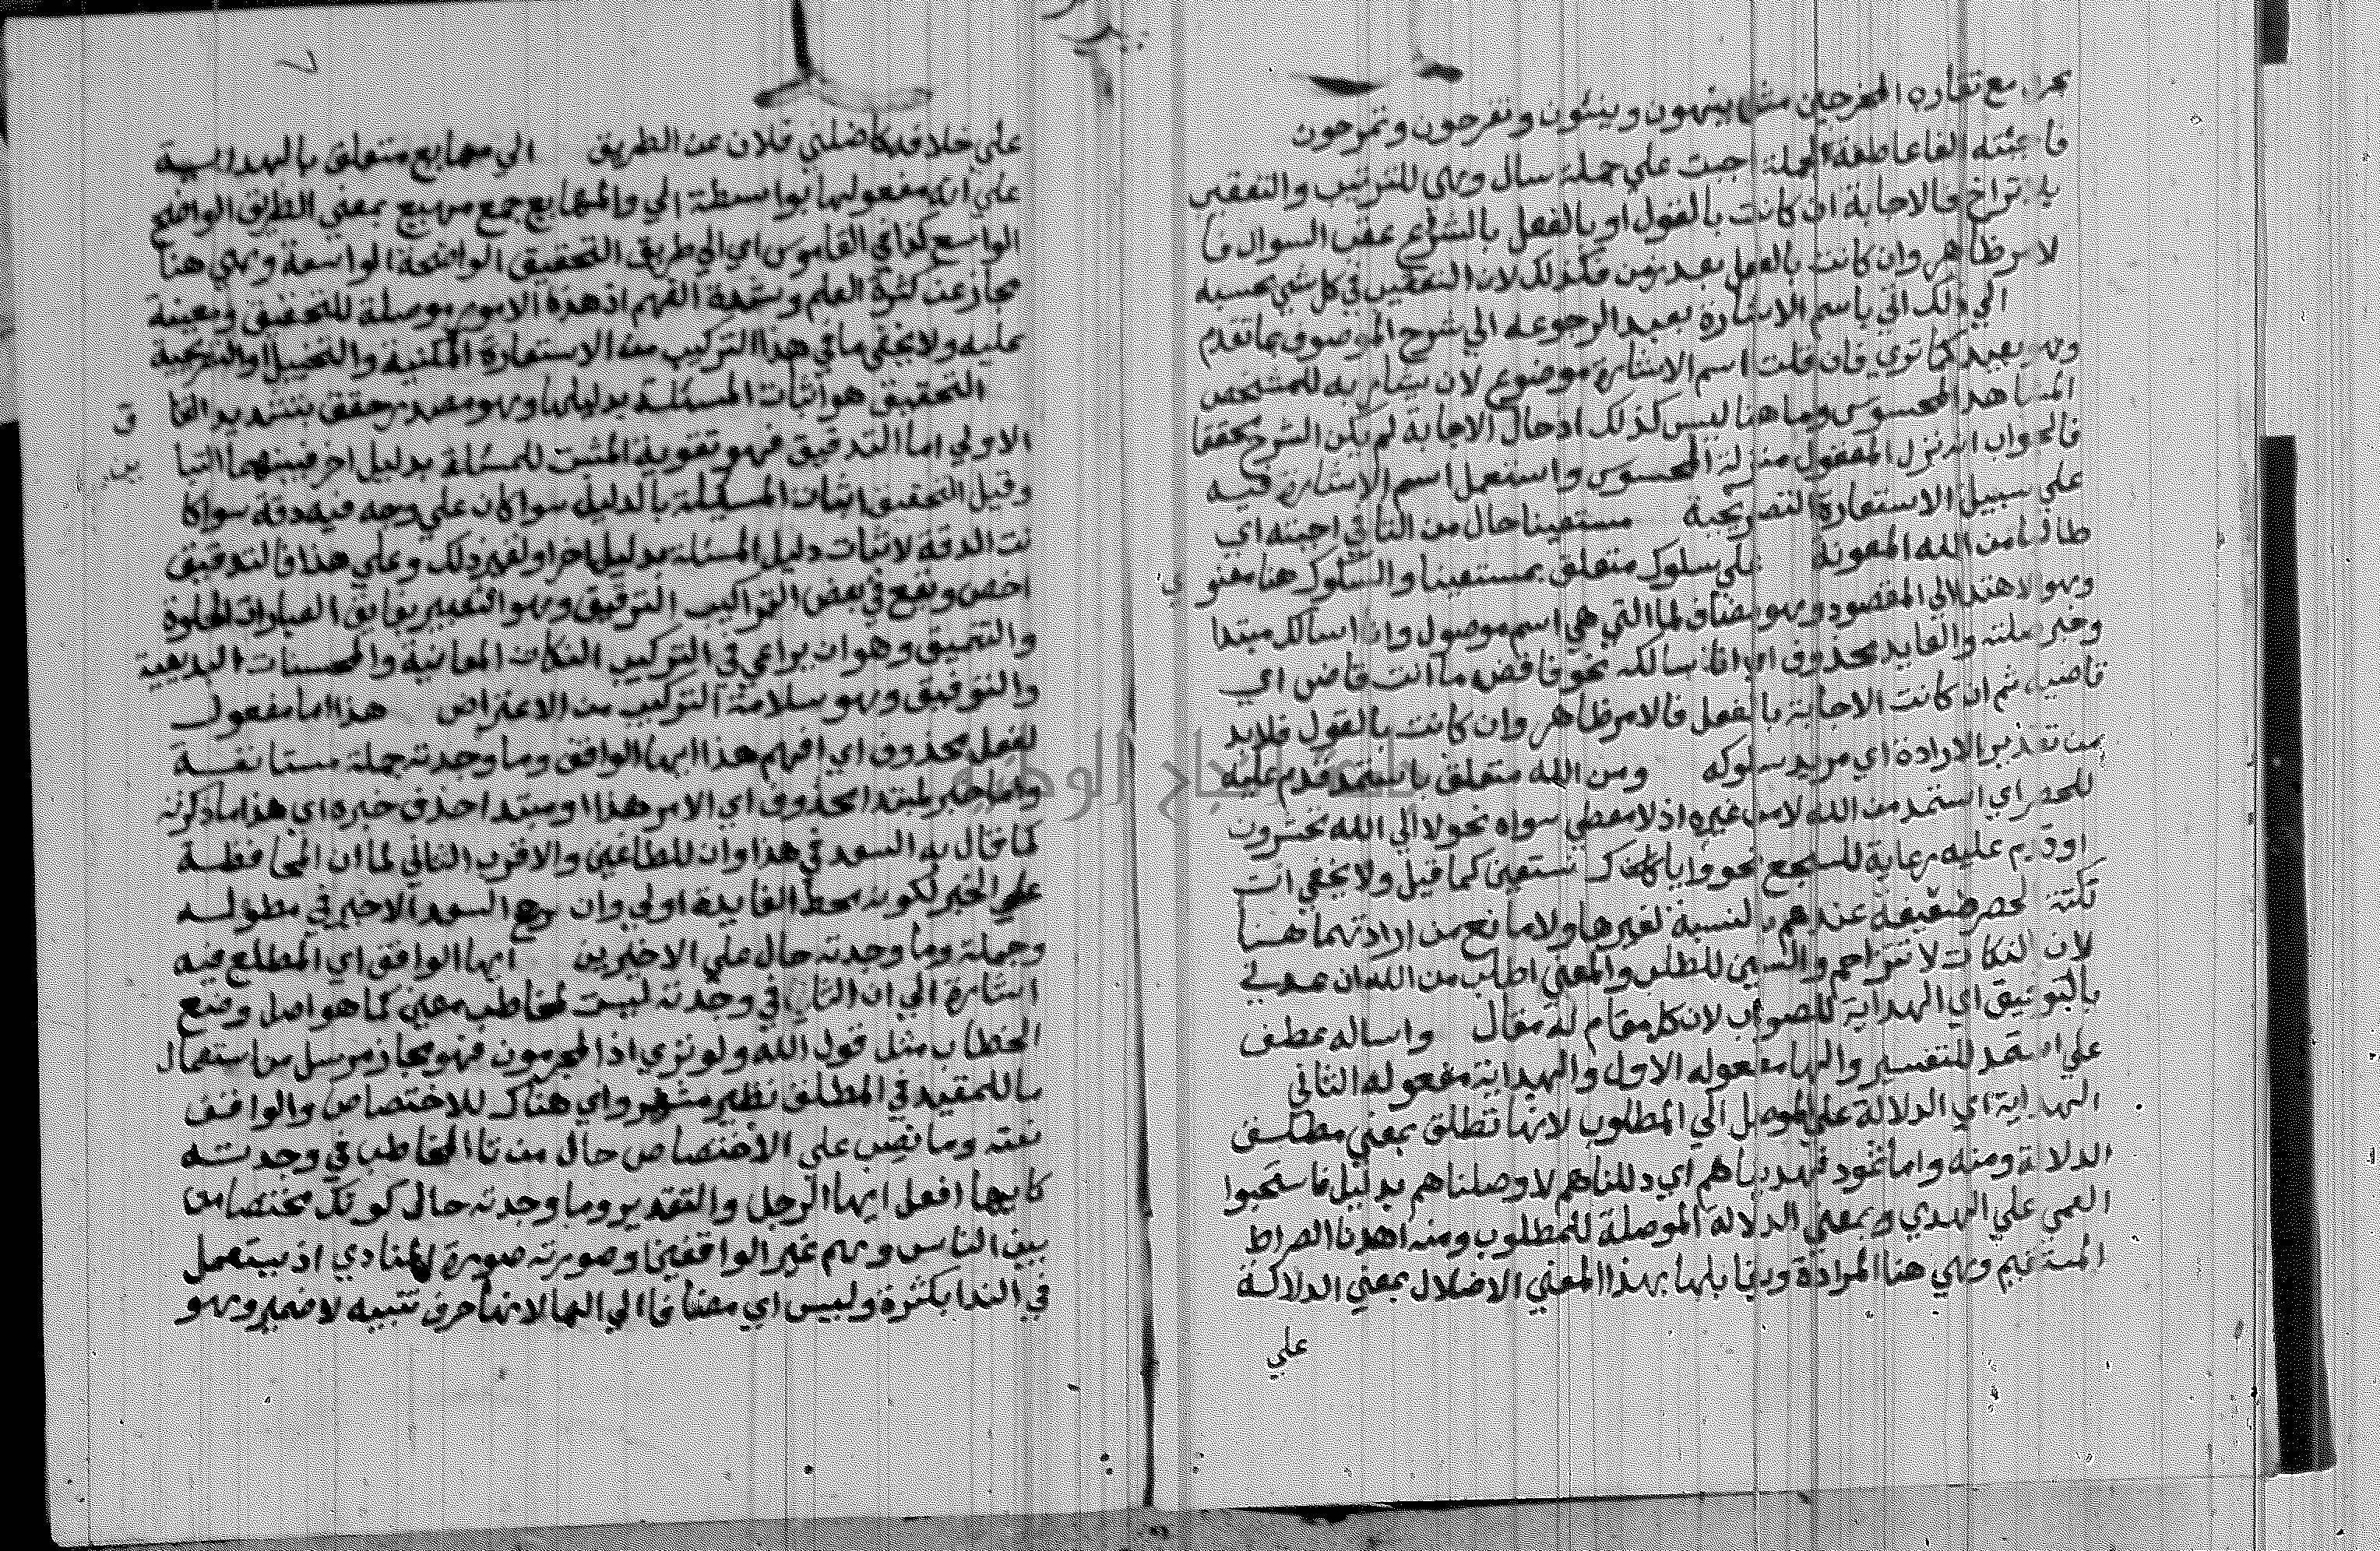 مع تقاره المخرجين مثل ينهون وينئون وتفرحون وتمرحون
فاجبته الفا عاطفة لجملة اجبت علي جملة سال وهي للترتيب والتعقيب
بلا تراخ فالاجابة ان كانت بالقول او بالفعل بالشروع عقب السوال فا
لامر ظاهر وان كانت بالفعل بعد زمن فكذلك لان التعقيب في كل شي بحسبه
الي ذلك اتي باسم الاشارة بعيد الرجوعه الي شرح الموصوف بما تقدم
وهو بعيد كما تري فان قلت اسم الاشارة موضوع لان يشار به للمشخص
المشاهد المحسوس وما هنا ليس كذلك اذ حال الاجابة لم يكن الشرح محققا
فالجواب انه نزل المعقول منزلة المحسوس واستعمل اسم الاشارة فيه
علي سبيل الاستعارة التصريحية مستعينا حال من التا في اجبته اي
طالبا من الله المعونة علي سلوك متعلق بمستعينا والسلوك هنا معنوي
وهو الاهتدا الي المقصود وهو مضاف لما التي هي اسم موصول وانا سالك مبتدا
وخبر صلته والعايد محذوف اي انا سالكه نحو فاقض ما انت قاض اي
قاضيه ثم ان كانت الاجابة بالفعل فالامر ظاهر وان كانت بالقول فلابد
من تقدير الارادة اي مريد سلوكه ومن الله متعلق باستمد قدم عليه
للحصر اي استمد من الله لا من غيره اذ لا معطي سواه نحو لا الي الله تحشرون
او قدم عليه رعاية للسجع نحو واياك نستعين كما قيل ولا يخفي ان
نكتة الحصر ضعيفة عندهم بالنسبة لغيرها ولا مانع من ارادتهما هنا
لان النكات لا تتزاحم والسين للطلب والمعني اطلب من الله ان يمدني
بالتوفيق اي الهداية للصواب لان كل مقام له مقال واساله عطف
علي استمد للتفسير والها مفعوله الاول والهداية مفعوله الثاني
الهداية اي الدلالة علي الموصل الي المطلوب لانها تطلق بمعني مطلق
الدلالة ومنه واما ثمود فهديناهم اي دللناهم لا وصلناهم بدليل فاستحبوا
العمي علي الهدي وبمعني الدلالة الموصلة للمطلوب ومنه اهدنا الصراط
المستقيم وهي هنا المرادة ويقابلها بهذا المعني الاضلال بمعني الدلالة
علي
٧
علي خلافه كاضلني فلان عن الطريق الي مهايع متعلق بالهداية
علي انه مفعولها بواسطة الي والمهايع جمع مهيع بمعني الطريق الواضح
الواسع كذا في القاموس اي الي طريق التحقيق الواضحة الواسعة وهي هنا
مجاز عن كثرة العلم وشدة الفهم اذ هذه الامور موصلة للتحقيق ومعينة
عليه ولا يخفي ما في هذا التركيب من الاستعارة المكنية والتخييل والترشيحية
التحقيق هو اثبات المسئلة بدليلها وهو مصدر حقق بتشديد القا ق
الاولي اما التدقيق فهو تقوية المثبت للمسئلة بدليل اخر فبينهما التبا ين
وقيل التحقيق اثبات المسئلة بالدليل سوا كان علي وجه فيه دقة سوا كا
نت الدقة لاثبات دليل المسئلة بدليل اخر او لغير ذلك وعلي هذا فالتدقيق
اخص ويقع في بعض التراكيب الترقيق وهو التعبير بفايق العبارات الحلوة
والتنميق وهو ان يراعي في التركيب النكات المعانية والمحسنات البديعية
والتوفيق وهو سلامة التركيب من الاعتراض هذا اما مفعول
لفعل محذوف اي افهم هذا ايها الواقف وما وجدته جملة مستانفة
واما خبر لمبتدا محذوف اي الامر هذا او مبتدا حذف خبره اي هذا ما ذكرته
كما قال به السعد في هذا وان للطاغين والاقرب الثاني لما ان المحافظة
علي الخبر لكونه محط الفايدة اولي وان رجح السعد الاخير في مطوله
وجملة وما وجدته حال علي الاخيرين ايها الواقف اي المطلع فيه
اشارة الي ان التا في وجدته ليست لمخاطب معين كما هو اصل وضع
الخطاب مثل قول الله ولو تري اذ المجرمون فهو مجاز مرسل من استعمال
ما للمقيد في المطلق نظير مشفر واي هناك للاختصاص والواقف
نعته وما نصب علي الاختصاص حال من تا المخاطب في وجدته
كايها افعل ايها الرجل والتقدير وما وجدته حال كونك مختصا من
بين الناس وهم غير الواقفين وصورته صورة المنادي اذ يستعمل
في الندا بكثرة وليس اي مضافا الي الها لانها حرف تنبيه لا ضمير وهو